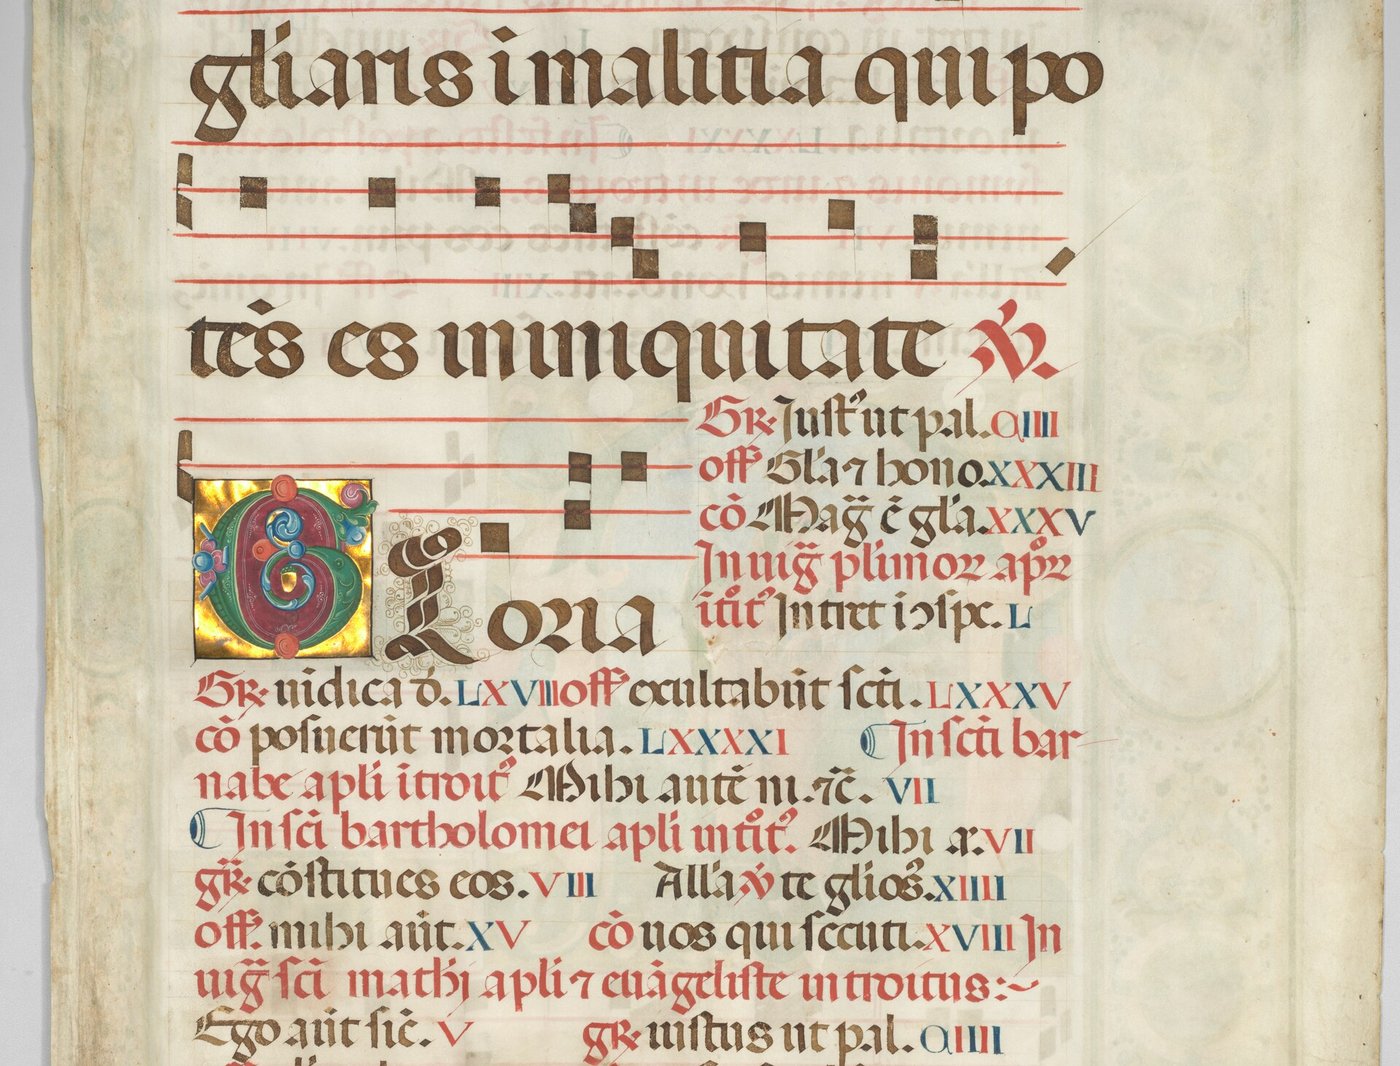 gliaris i malitia qui po
tēs es in iniquitate ℣.
Gloria
Gr. Just᾽ ut pal. CIIII
off᾽ Gl’a ⁊ hono. XXXIII
cō Mag̃ ē gl’a. XXXV
In uig̃ pl’imoꝝ ap’oꝝ
ītit᾽ Intret ī ↄspc. L
Gr. uīdica d̄. LXVIII off᾽ exultabūt scti. LXXXV
cō posuerūt mortalia. LXXXXI ¶ In scti bar
nabe apl’i ītroit᾽ Mihi autē ni. ⁊c̄. VII
¶ In sc̄i bartholomei apl’i intit᾽. Mihi a. VII
gr̄. cōstitues eos. VIII All’a ℣ te glios᾽. XIIII
off᾽. mihi aūt. XV cō uos qui secuti. XVIIII In
uig̃ sc̄i mathi apl’i ⁊ euāgeliste introitus:~
Ego aūt sic̄. V gr. iustus ut pal. CIIII